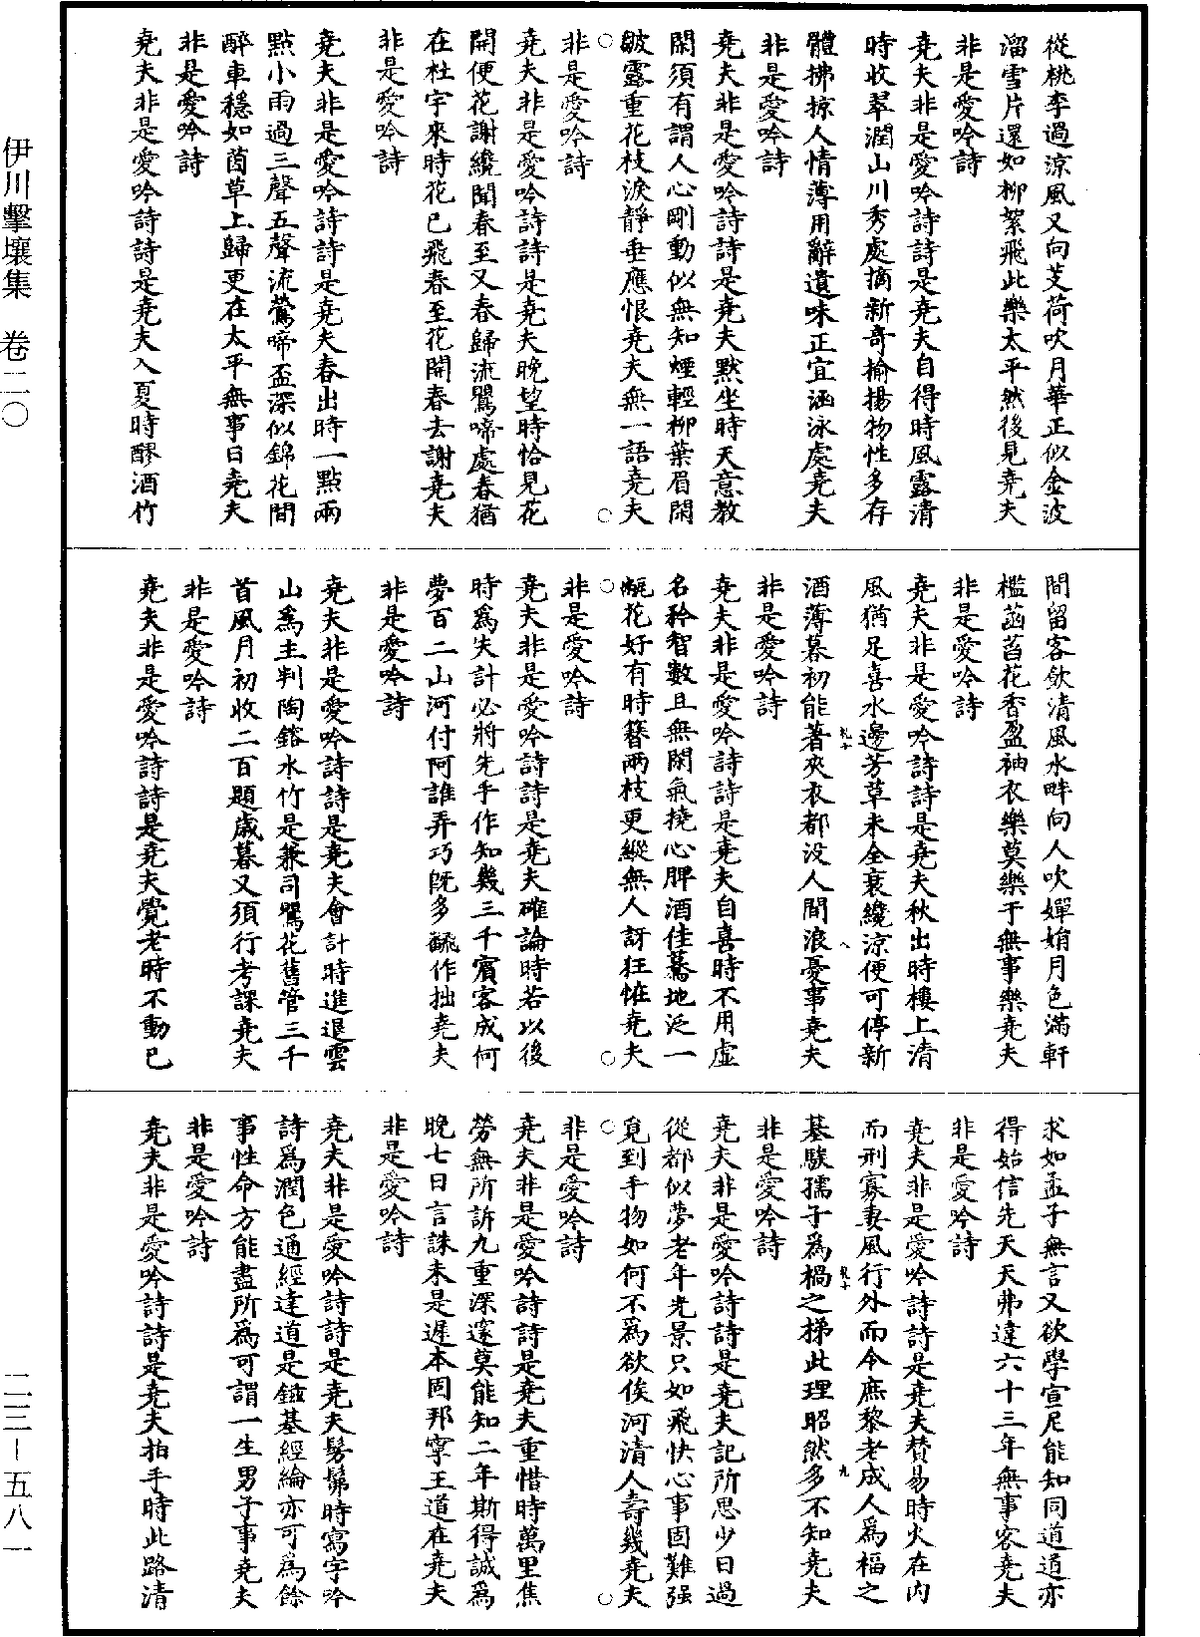 從桃李過涼風又向芰荷吹月華正似金波
溜雪片還如柳絮飛此樂太平然後見堯夫
非是愛吟詩
堯夫非是愛吟詩詩是堯夫自得時風露清
時收翠潤山川秀處摘新奇揄揚物性多存
體拂掠人情薄用辭遺味正宜涵泳處堯夫
非是愛吟詩
堯夫非是愛吟詩詩是堯夫默坐時天意教
閑須有謂人心剛動似無知煙輕柳葉眉閑
皺露重花枝淚靜垂應恨堯夫無一語堯夫
非是愛吟詩
堯夫非是愛吟詩詩是堯夫晚望時恰見花
開便花謝纔聞春至又春歸流鶯啼處春猶
在杜宇來時花已飛春至花開春去謝堯夫
非是愛吟詩
堯夫非是愛吟詩詩是堯夫春出時一點兩
點小雨過三聲五聲流鶯啼盃深似錦花間
醉車穩如茵草上歸更在太平無事日堯夫
非是愛吟詩
堯夫非是愛吟詩詩是堯夫入夏時醪酒竹
間留客飲清風水畔向人吹嬋娟月色滿軒
檻菡萏花香盈袖衣樂莫樂于無事樂堯夫
非是愛吟詩
堯夫非是愛吟詩詩是堯夫秋出時樓上清
風猶足喜水邊芳草未全衰纔涼便可停新
酒薄暮初能著夾衣都没人間浪憂事堯夫
非是愛吟詩
堯夫非是愛吟詩詩是堯夫自喜時不用虛
名矜智數且無閑氣撓心脾酒佳驀地泛一
梡花好有時簪兩枝更縱無人訝狂恠堯夫
非是愛吟詩
堯夫非是愛吟詩詩是堯夫確論時若以後
時爲失計必將先手作知幾三千賓客成何
夢百二山河付阿誰弄巧旣多飜作拙堯夫
非是愛吟詩
堯夫非是愛吟詩詩是堯夫會計時進退雲
山爲主判陶鎔水竹是兼司鶯花舊管三千
首風月初收二百題歲暮又須行考課堯夫
非是愛吟詩
堯夫非是愛吟詩詩是堯夫覺老時不動已
求如孟子無言又欲學宣尼能知同道道亦
得始信先天天弗違六十三年無事客堯夫
非是愛吟詩
堯夫非是愛吟詩詩是堯夫賛易時火在内
而刑寡妻風行外而令庶黎老成人爲福之
基騃孺子爲禍之梯此理昭然多不知堯夫
非是愛吟詩
堯夫非是愛吟詩詩是堯夫記所思少日過
從都似夢老年光景只如飛快心事固難强
覓到手物如何不爲欲俟河清人壽幾堯夫
非是愛吟詩
堯夫非是愛吟詩詩是堯夫重惜時萬里焦
勞無所訴九重深邃莫能知二年斯得誠爲
晚七日言誅未是遲本固邦寧王道在堯夫
非是愛吟詩
堯夫非是愛吟詩詩是堯夫髣髴時寫字吟
詩爲潤色通經達道是鎡基經綸亦可爲餘
事性命方能盡所爲可謂一生男子事堯夫
非是愛吟詩
堯夫非是愛吟詩詩是堯夫拍手時此路清
伊川擊壤集 卷二〇
二三-五八一